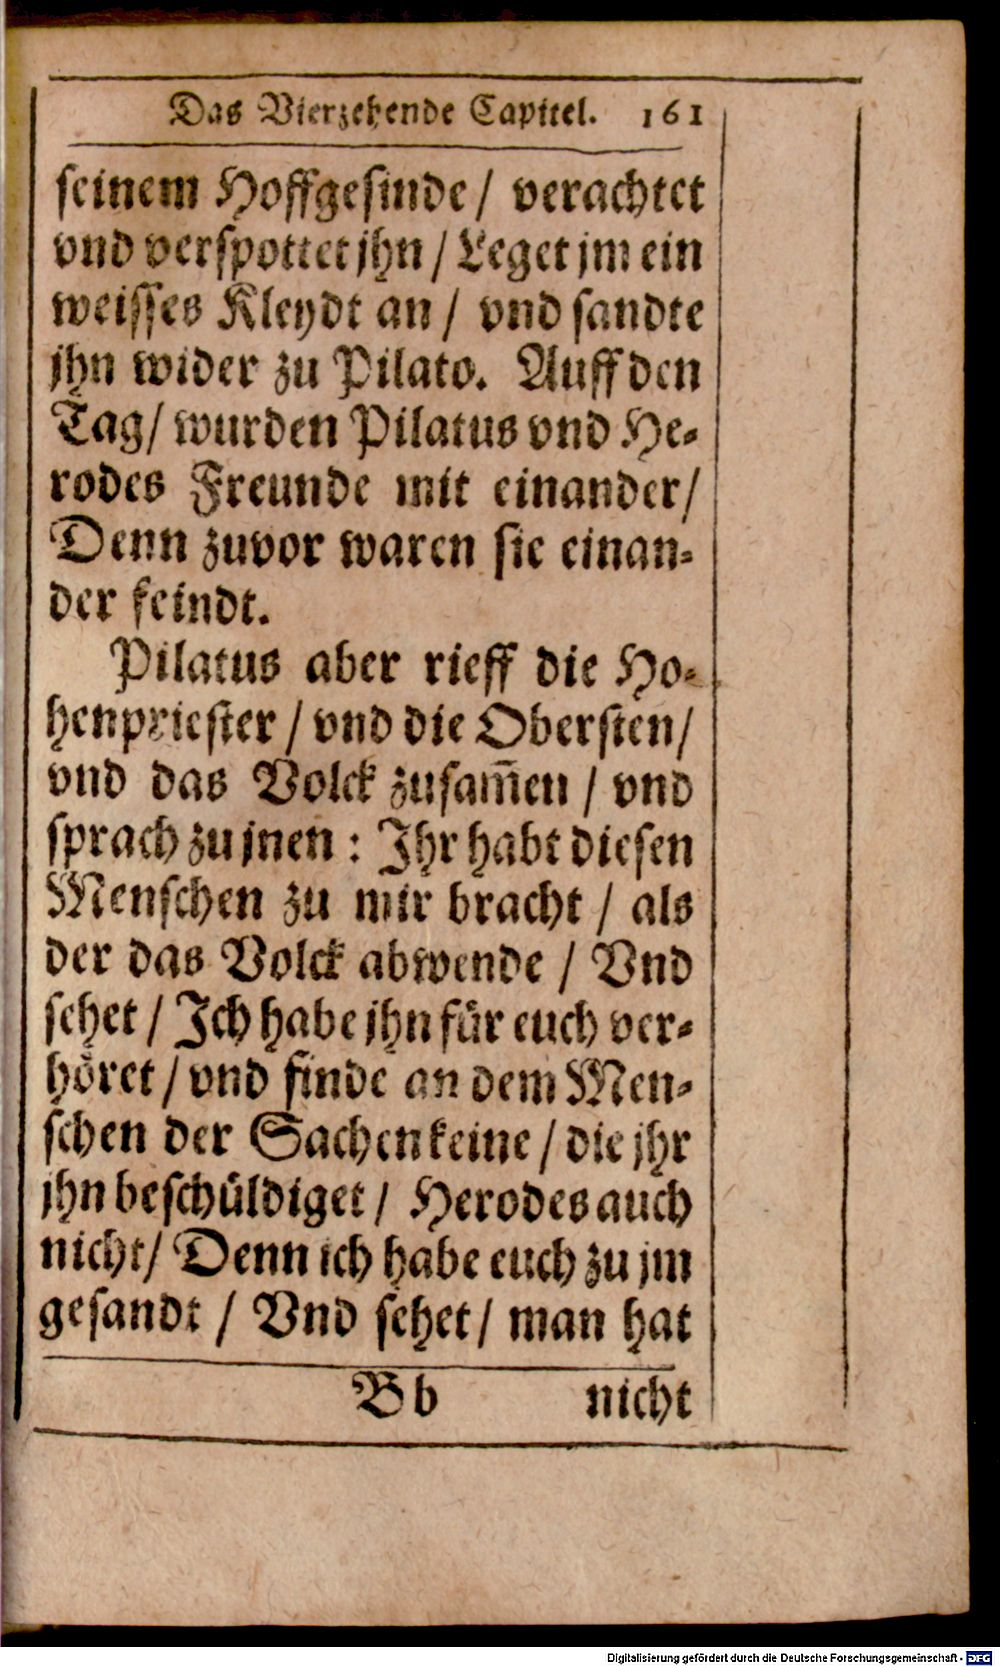 Das Vierzehende Capitel. 161
seinem Hoffgesinde / verachtet
vnd verspottet jhn / Leget jm ein
weisses Kleydt an / vnd sandte
jhn wider zu Pilato. Auff den
Tag / wurden Pilatus vnd He-
rodes Freunde mit einander /
Denn zuvor waren sie einan-
der feindt.
Pilatus aber rieff die Ho-
henpriester / vnd die Obersten /
vnd das Volck zusam̄en / vnd
sprach zu jnen : Ihr habt diesen
Menschen zu mir bracht / als
der das Volck abwende / Vnd
sehet / Ich habe jhn für euch ver-
höret / vnd finde an dem Men-
schen der Sachen keine / die jhr
jhn beschüldiget / Herodes auch
nicht / Denn ich habe euch zu jm
gesandt / Vnd sehet / man hat
Bb nicht
Digitalisierung gefördert durch die Deutsche Forschungsgemeinschaft - DFG